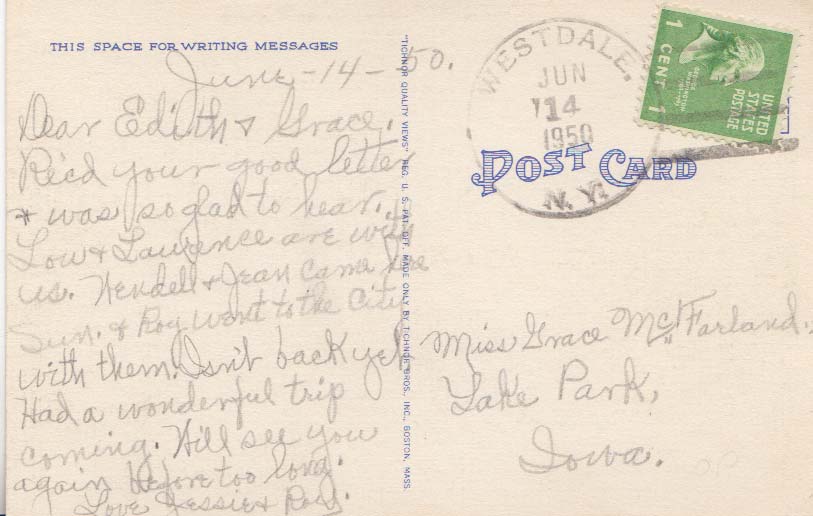 THIS SPACE FOR WRITING MESSAGES
June-14-50.
Dear Edith & Grace,
Rec'd your good letter
& was so glad to hear.
Lou & Laurence are with
us. Wendell & Jean came here
Sun. & Roy went to the City
with them. Isn't back yet.
Had a wonderful trip
coming. Will see you
again before too long.
Love Jessie & Roy.
"TICHNOR QUALITY VIEWS" REG. U. S. PAT. OFF. MADE ONLY BY TICHNOR BROS., INC., BOSTON, MASS.
WESTDALE,
JUN
14
1950
N. Y.
POST CARD
1 CENT 1
GEORGE WASHINGTON
UNITED STATES POSTAGE
Miss Grace McFarland.
Lake Park,
Iowa.